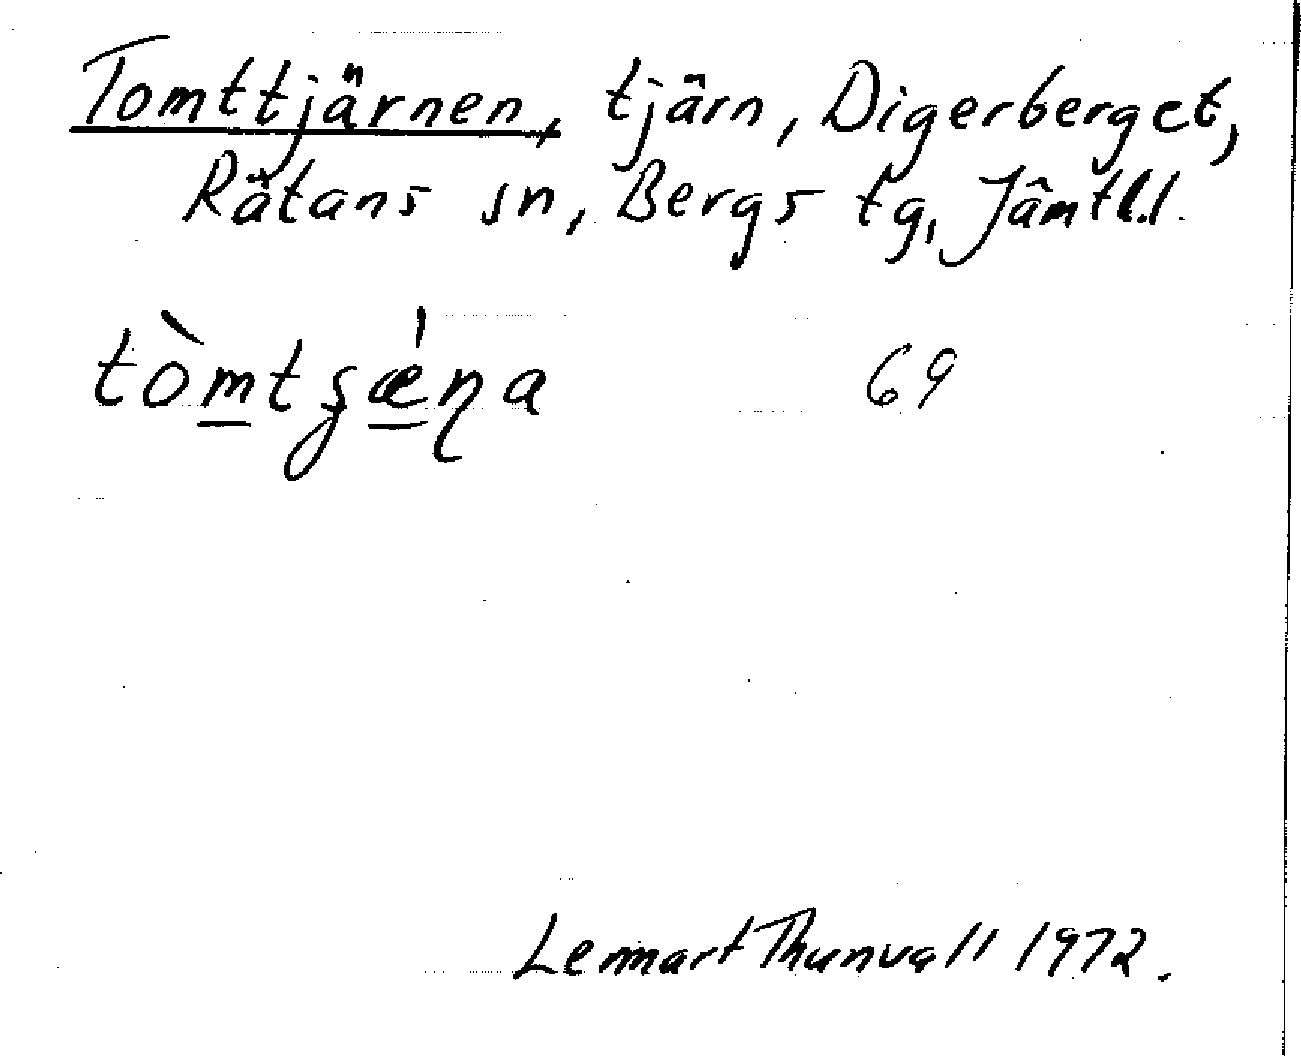 Tomttjärnen, tjärn, Digerberget,
Rätans sn, Bergs tg, Jämtl.l.
tòmtʂǽɳa 69
Lennart Thunvall 1972.